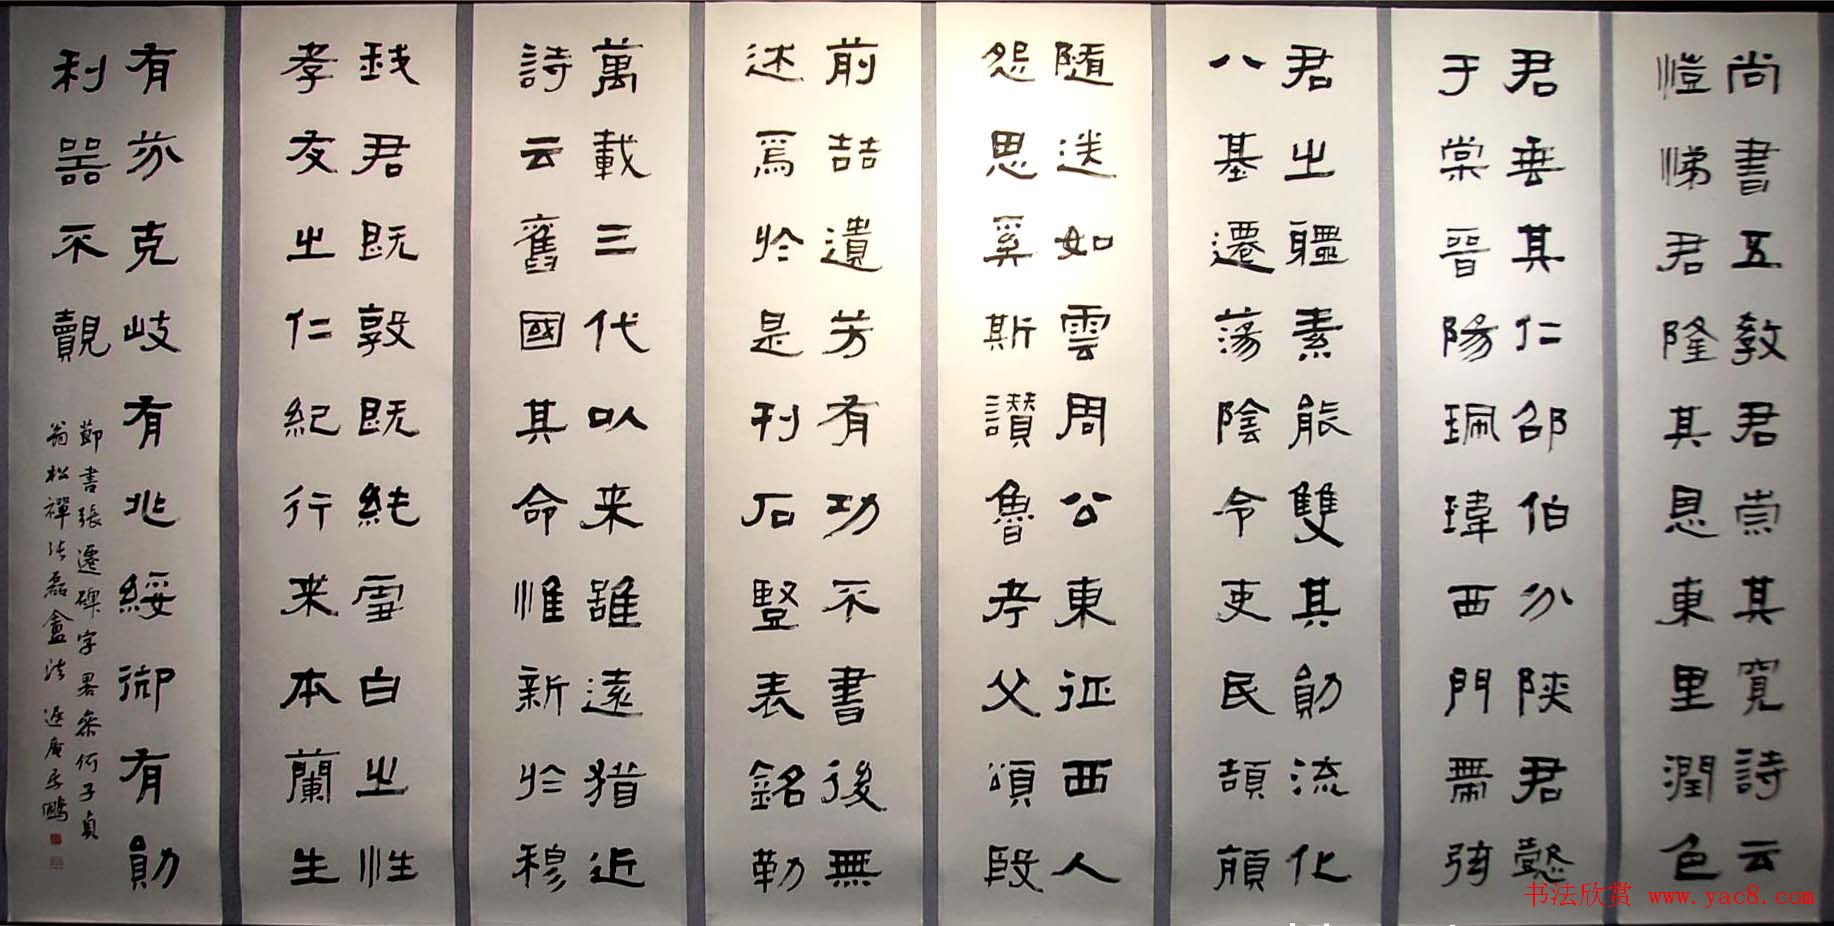 尚書五教君崇其寬詩云
愷悌君隆其恩東里潤色
君垂其仁邵伯分陝君懿
于棠晉陽珮瑋西門帶弦
君之軆素能雙其勛流化
八基遷蕩陰令吏民頡頏
隨送如雲周公東征西人
怨思奚斯讚魯考父頌殷
前喆遺芳有功不書後無
述焉於是刊石豎表銘勒
萬載三代以来雖遠猶近
詩云舊國其命惟新於穆
我君既敦既純雪白之性
孝友之仁紀行来本蘭生
有芬克岐有兆綏御有勛
利器不覿
節書張遷碑字畧參何子貞
翁松禪 磊盦法
书法欣赏 www.yac8.com